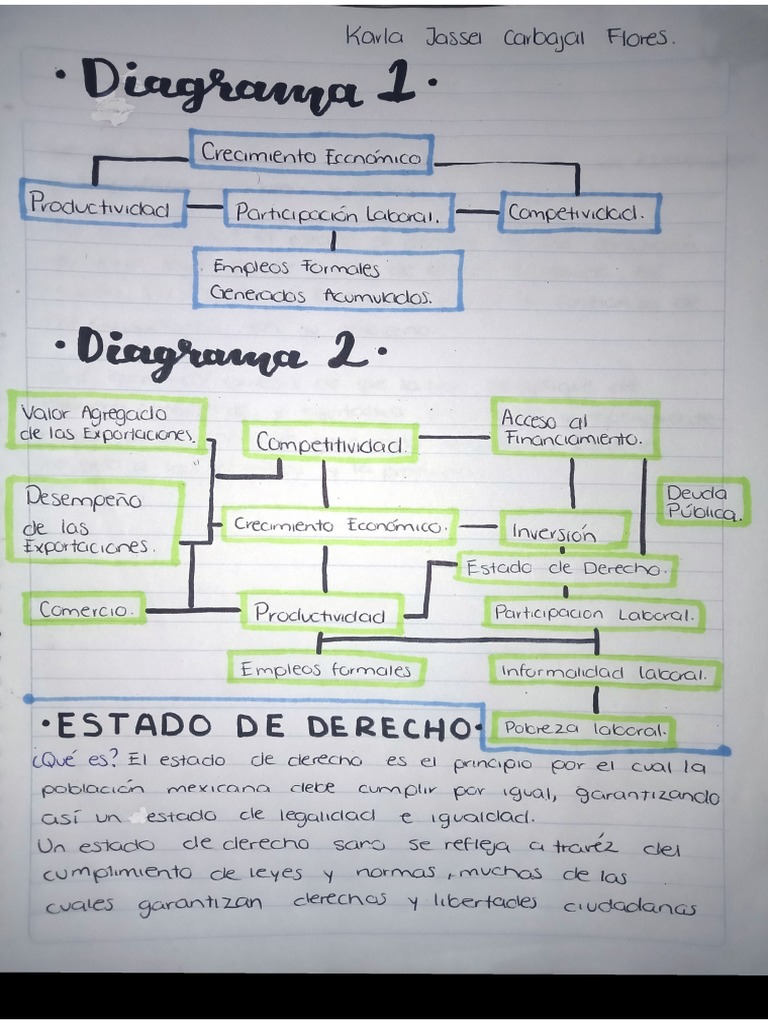 Karla Jassel Carbajal Flores.
• Diagrama 1 •
Crecimiento Económico
Productividad
Participación Laboral.
Competividad.
Empleos Formales
Generados Acumulados.
• Diagrama 2 •
Valor Agregado
de las Exportaciones.
Competitividad.
Acceso al
Financiamiento.
Desempeño
de las
Exportaciones.
Crecimiento Económico.
Inversión
Deuda
Pública.
Estado de Derecho.
Comercio.
Productividad
Participacion Laboral.
Empleos formales
Informalidad laboral.
Pobreza laboral.
• ESTADO DE DERECHO •
¿Qué es? El estado de derecho es el principio por el cual la
población mexicana debe cumplir por igual, garantizando
así un estado de legalidad e igualdad.
Un estado de derecho sano se refleja a travéz del
cumplimiento de leyes y normas, muchas de las
cuales garantizan derechos y libertades ciudadanas